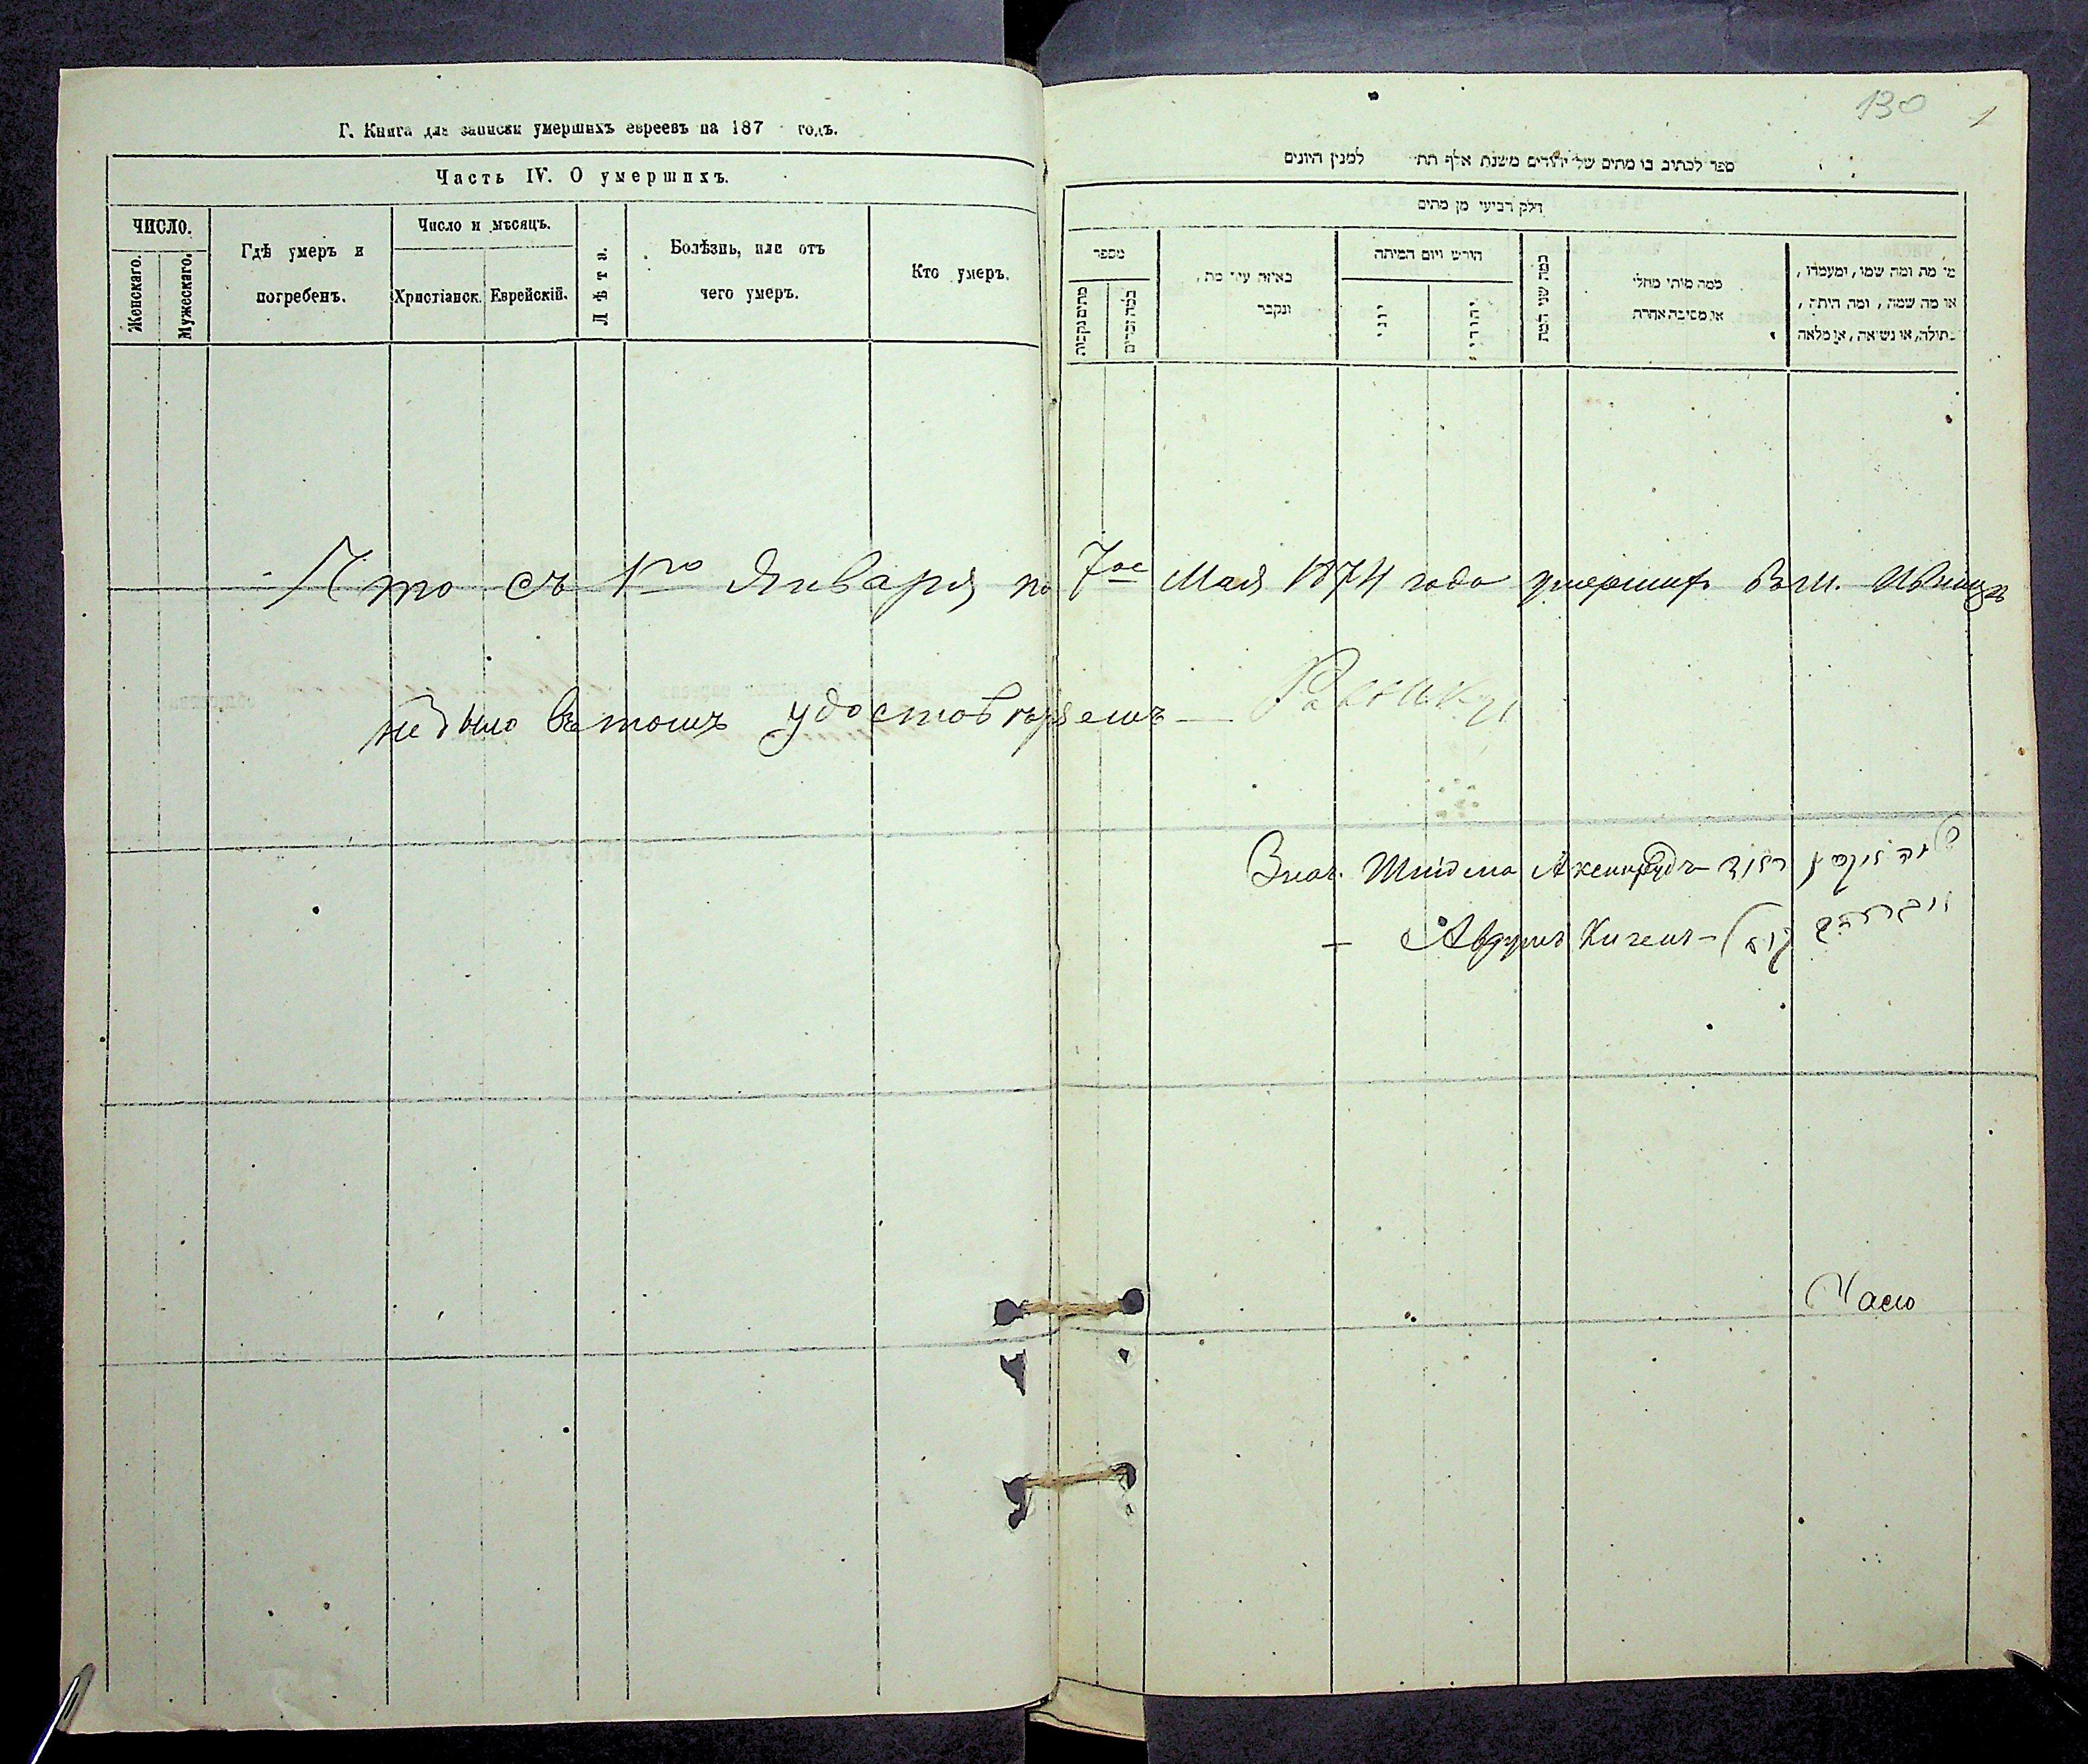 Г. Книга для записки умершихъ евреевъ на 187 годъ.
Часть IV. О умершихъ.
ЧИСЛО.
Женскаго.
Мужескаго.
Гдѣ умеръ и
погребенъ.
Число и мѣсяцъ.
Христіанск.
Еврейскій.
Лѣта.
Болѣзнь, или отъ
чего умеръ.
Кто умеръ.
130
1
ספר לכתוב בו מתים של יהודים משנת אלף תת למנין היונים
חלק רביעי מן מתים
מספר
מתים נקבות
כמה זכרים
באיזה עיר מת,
ונקבר
חודש ויום המיתה
יוני
יהודי
כמה שני המת
ממה מותו מחלי
או מסיבה אחרת
מי מת ומה שמו, ומעמדו,
או מה שמה, ומה היתה,
בתולה, או נשואה, או מלאה
Что съ 1го Января по 7ое Мая 1874 года умершихъ Въ м.
небыло въ томъ удостовѣряемъ —
Шлйома
— Абрумъ Кигель —